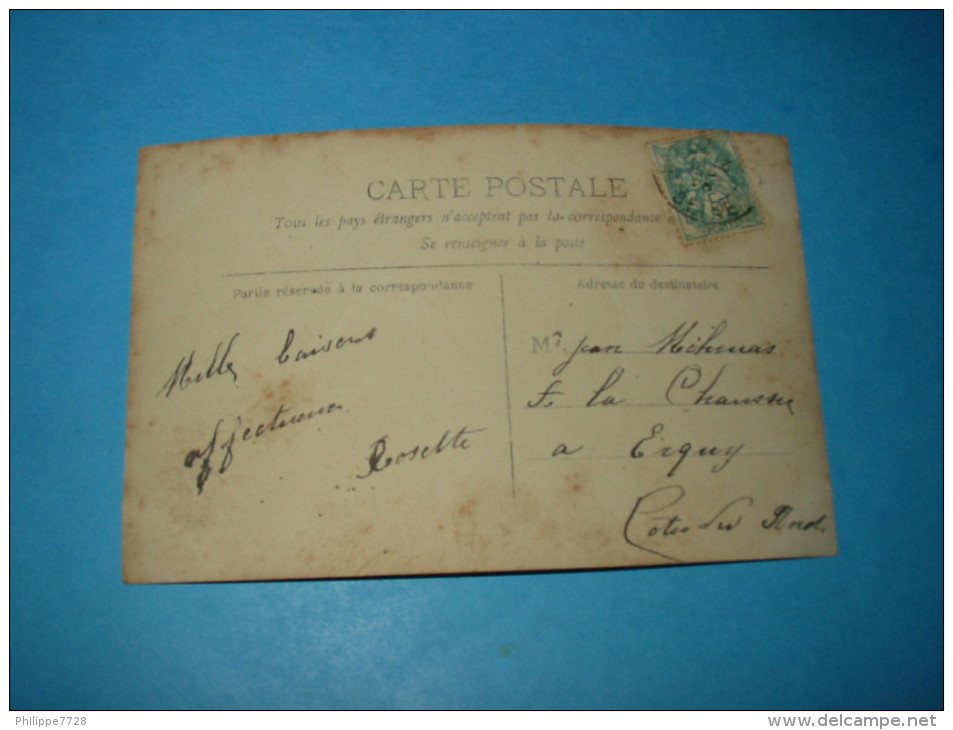 CARTE POSTALE
Tous les pays étrangers n'acceptent pas la correspondance
Se renseigner à la poste
Partie réservée à la correspondance
Adresse du destinataire
Mille baisers
affectueux
Rosette
M Jean
La Chaussée
a Erquy
Cotes du Nord
SEINE
Philippe7728
www.delcampe.net